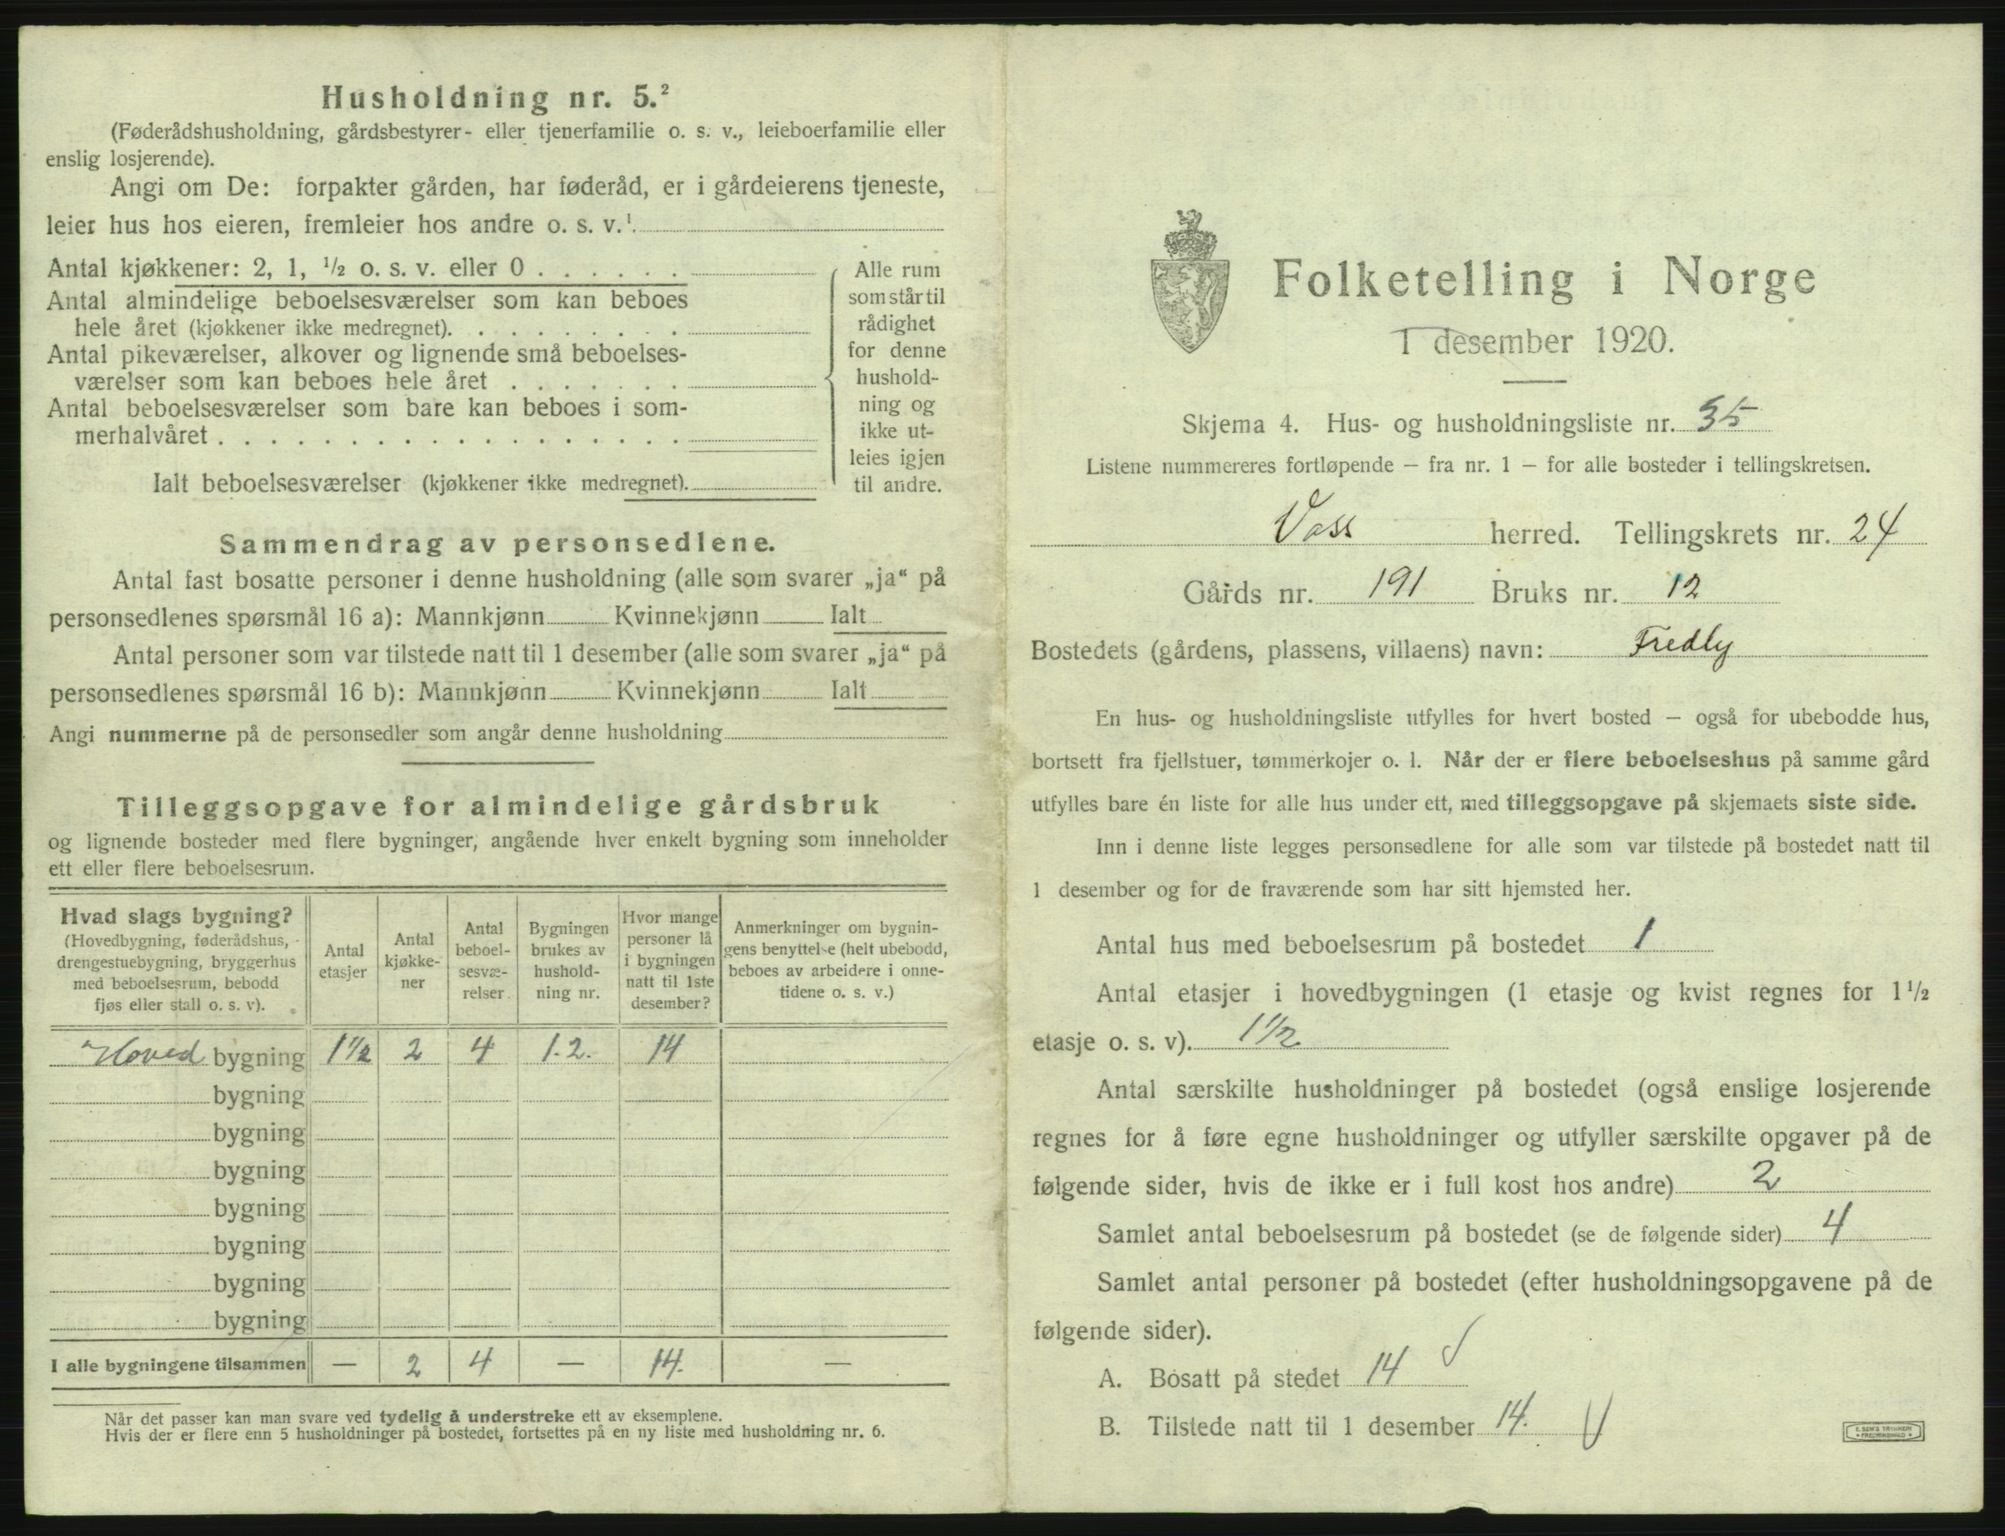 Husholdning nr. 5.²
(Føderådshusholdning, gårdsbestyrer- eller tjenerfamilie o. s. v., leieboerfamilie eller
enslig losjerende).
Angi om De: forpakter gården, har føderåd, er i gårdeierens tjeneste,
leier hus hos eieren, fremleier hos andre o. s. v.¹
Antal kjøkkener: 2, 1, ½ o. s. v. eller 0 . . . . . .
Antal almindelige beboelsesværelser som kan beboes
hele året (kjøkkener ikke medregnet). . . . . . . . .
Antal pikeværelser, alkover og lignende små beboelses-
værelser som kan beboes hele året . . . . . . .
Antal beboelsesværelser som bare kan beboes i som-
merhalvåret . . . . . . . . . . . . . . . . . .
Ialt beboelsesværelser (kjøkkener ikke medregnet).
Alle rum
som står til
rådighet
for denne
hushold-
ning og
ikke ut-
leies igjen
til andre.
Sammendrag av personsedlene.
Antal fast bosatte personer i denne husholdning (alle som svarer „ja“ på
personsedlenes spørsmål 16 a): Mannkjønn Kvinnekjønn Ialt
Antal personer som var tilstede natt til 1 desember (alle som svarer „ja“ på
personsedlenes spørsmål 16 b): Mannkjønn Kvinnekjønn Ialt
Angi nummerne på de personsedler som angår denne husholdning
Tilleggsopgave for almindelige gårdsbruk
og lignende bosteder med flere bygninger, angående hver enkelt bygning som inneholder
ett eller flere beboelsesrum.
Hvad slags bygning?
(Hovedbygning, føderådshus,
drengestuebygning, bryggerhus
med beboelsesrum, bebodd
fjøs eller stall o. s. v).
Antal
etasjer
Antal
kjøkke-
ner
Antal
beboel-
sesvæ-
relser
Bygningen
brukes av
hushold-
ning nr.
Hvor mange
personer lå
i bygningen
natt til 1ste
desember?
Anmerkninger om bygnin-
gens benyttelse (helt ubebodd,
beboes av arbeidere i onne-
tidene o. s. v.)
Hoved bygning 1½ 2 4 1.2. 14
bygning
bygning
bygning
bygning
bygning
bygning
bygning
I alle bygningene tilsammen — 2 4 — 14. —
Når det passer kan man svare ved tydelig å understreke ett av eksemplene.
Hvis der er flere enn 5 husholdninger på bostedet, fortsettes på en ny liste med husholdning nr. 6.
Folketelling i Norge
1 desember 1920.
Skjema 4. Hus- og husholdningsliste nr. 35
Listene nummereres fortløpende – fra nr. 1 – for alle bosteder i tellingskretsen.
Voss herred. Tellingskrets nr. 24
Gårds nr. 191 Bruks nr. 12
Bostedets (gårdens, plassens, villaens) navn: Fredly
En hus- og husholdningsliste utfylles for hvert bosted – også for ubebodde hus,
bortsett fra fjellstuer, tømmerkojer o. l. Når der er flere beboelseshus på samme gård
utfylles bare én liste for alle hus under ett, med tilleggsopgave på skjemaets siste side.
Inn i denne liste legges personsedlene for alle som var tilstede på bostedet natt til
1 desember og for de fraværende som har sitt hjemsted her.
Antal hus med beboelsesrum på bostedet 1
Antal etasjer i hovedbygningen (1 etasje og kvist regnes for 1½
etasje o. s. v). 1½
Antal særskilte husholdninger på bostedet (også enslige losjerende
regnes for å føre egne husholdninger og utfyller særskilte opgaver på de
følgende sider, hvis de ikke er i full kost hos andre) 2
Samlet antal beboelsesrum på bostedet (se de følgende sider) 4
Samlet antal personer på bostedet (efter husholdningsopgavene på de
følgende sider).
A. Bosatt på stedet 14
B. Tilstede natt til 1 desember 14.